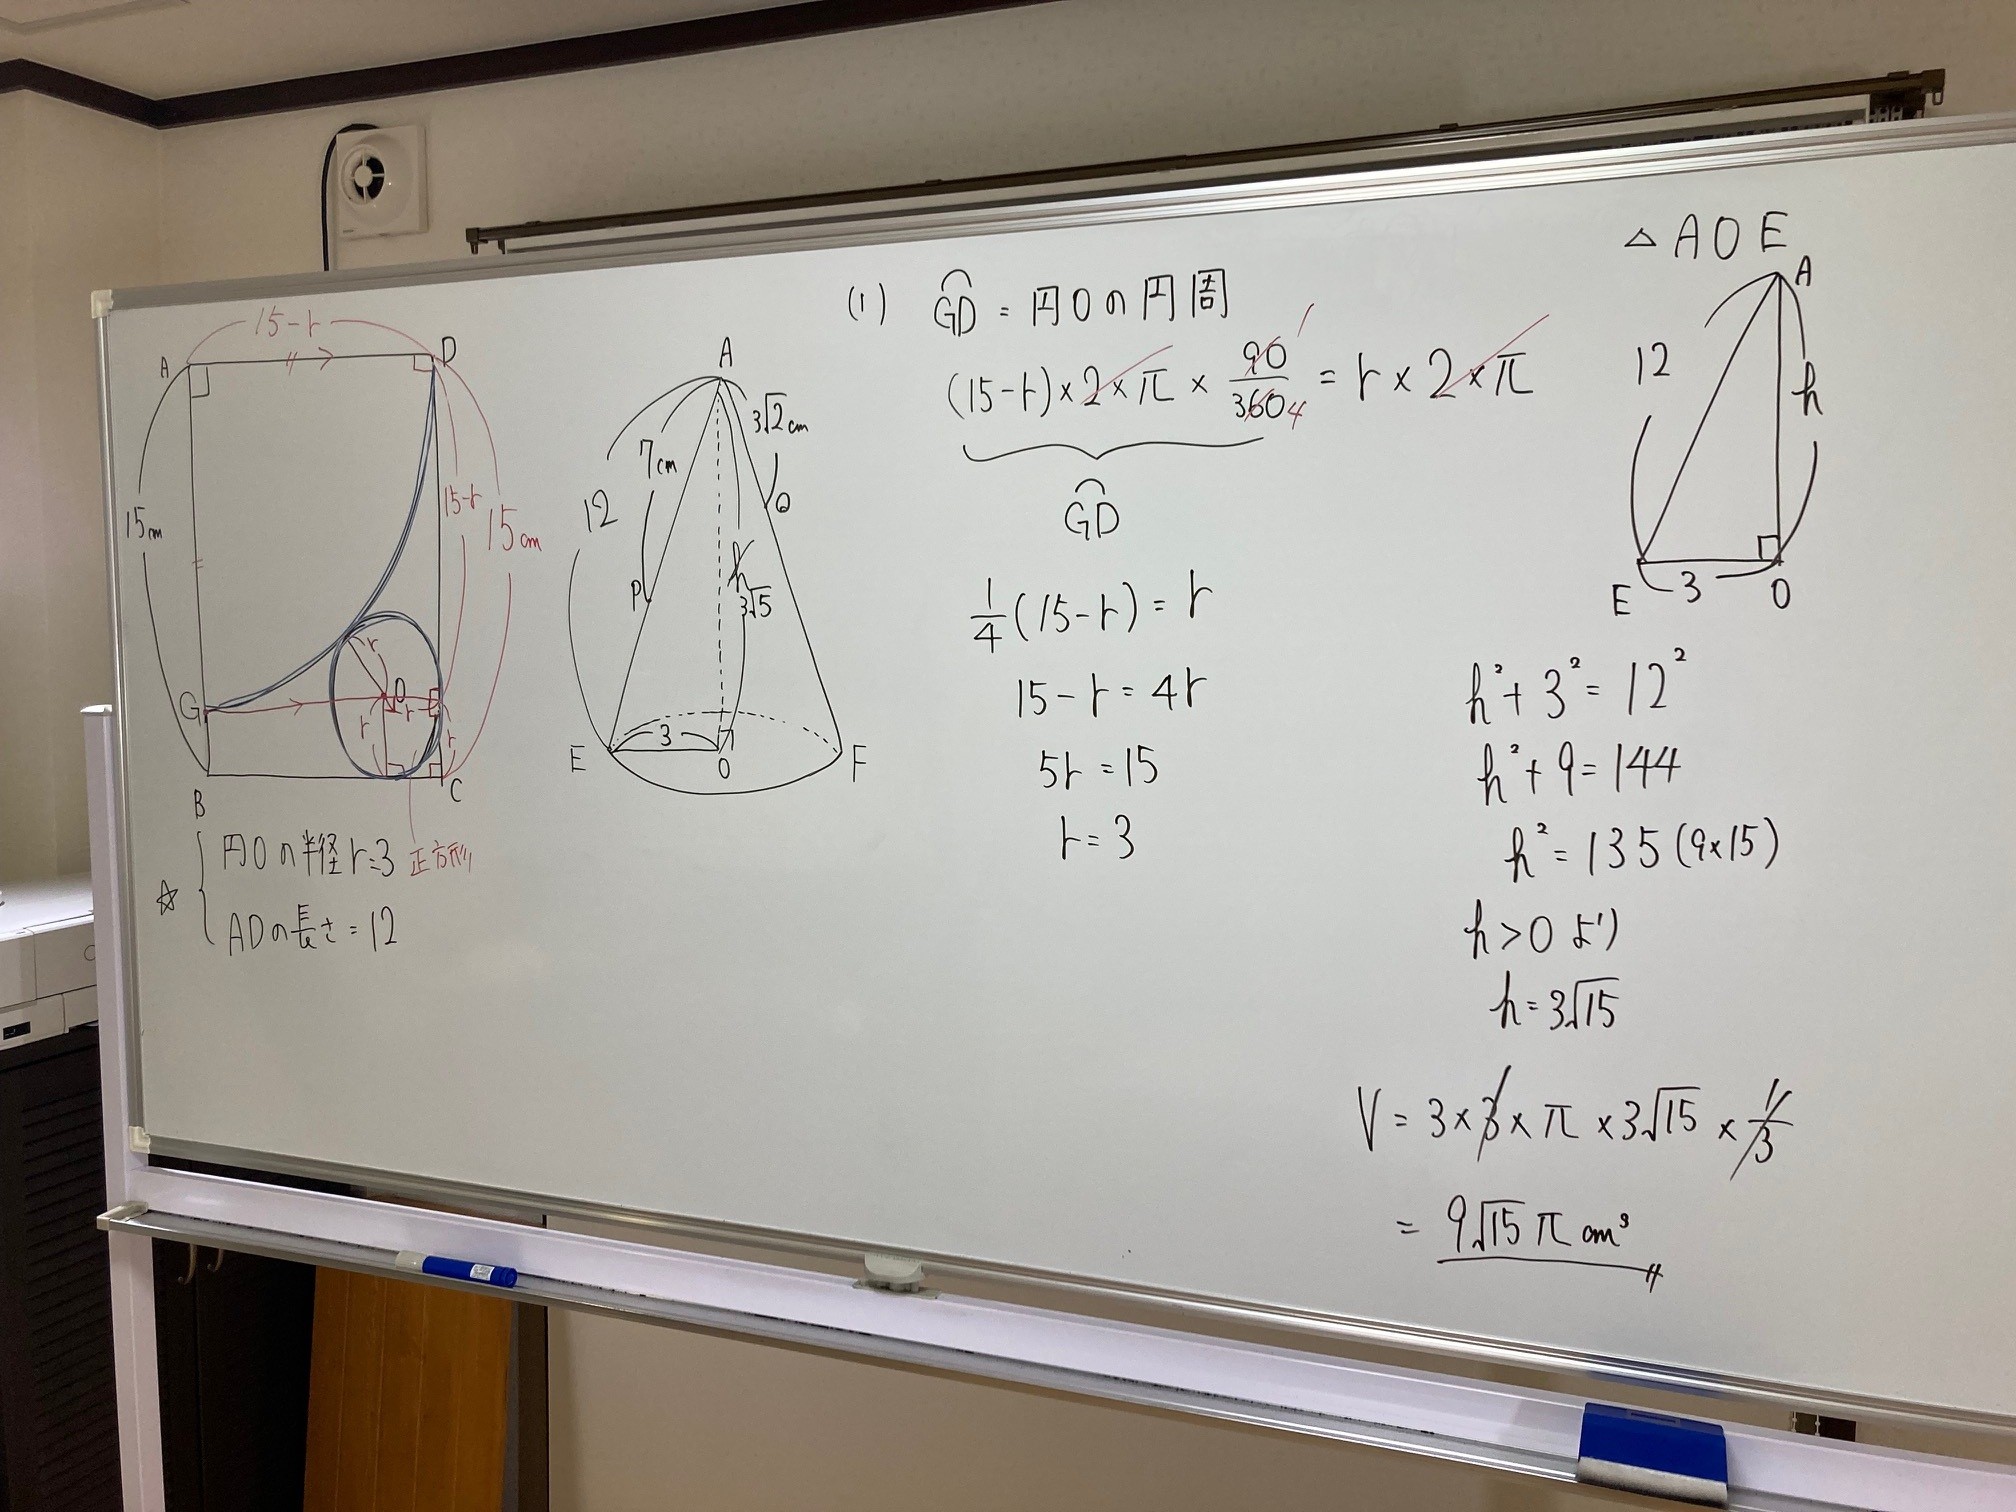 15-r
A
D
15cm
15-r
15cm
G
r
O
r
r
r
B
C
正方形
☆
円Oの半径r=3
ADの長さ=12
A
3√2cm
7cm
12
Q
P
h
3√15
3
E
O
F
(1) GD = 円Oの円周
(15-r)×2×π × 90/360 = r×2×π
1
4
GD
1/4(15-r) = r
15-r = 4r
5r = 15
r = 3
△AOE
A
12
h
3
E
O
h²+3² = 12²
h²+9 = 144
h² = 135 (9×15)
h>0 より
h = 3√15
V = 3×3×π×3√15×1/3
= 9√15 π cm³